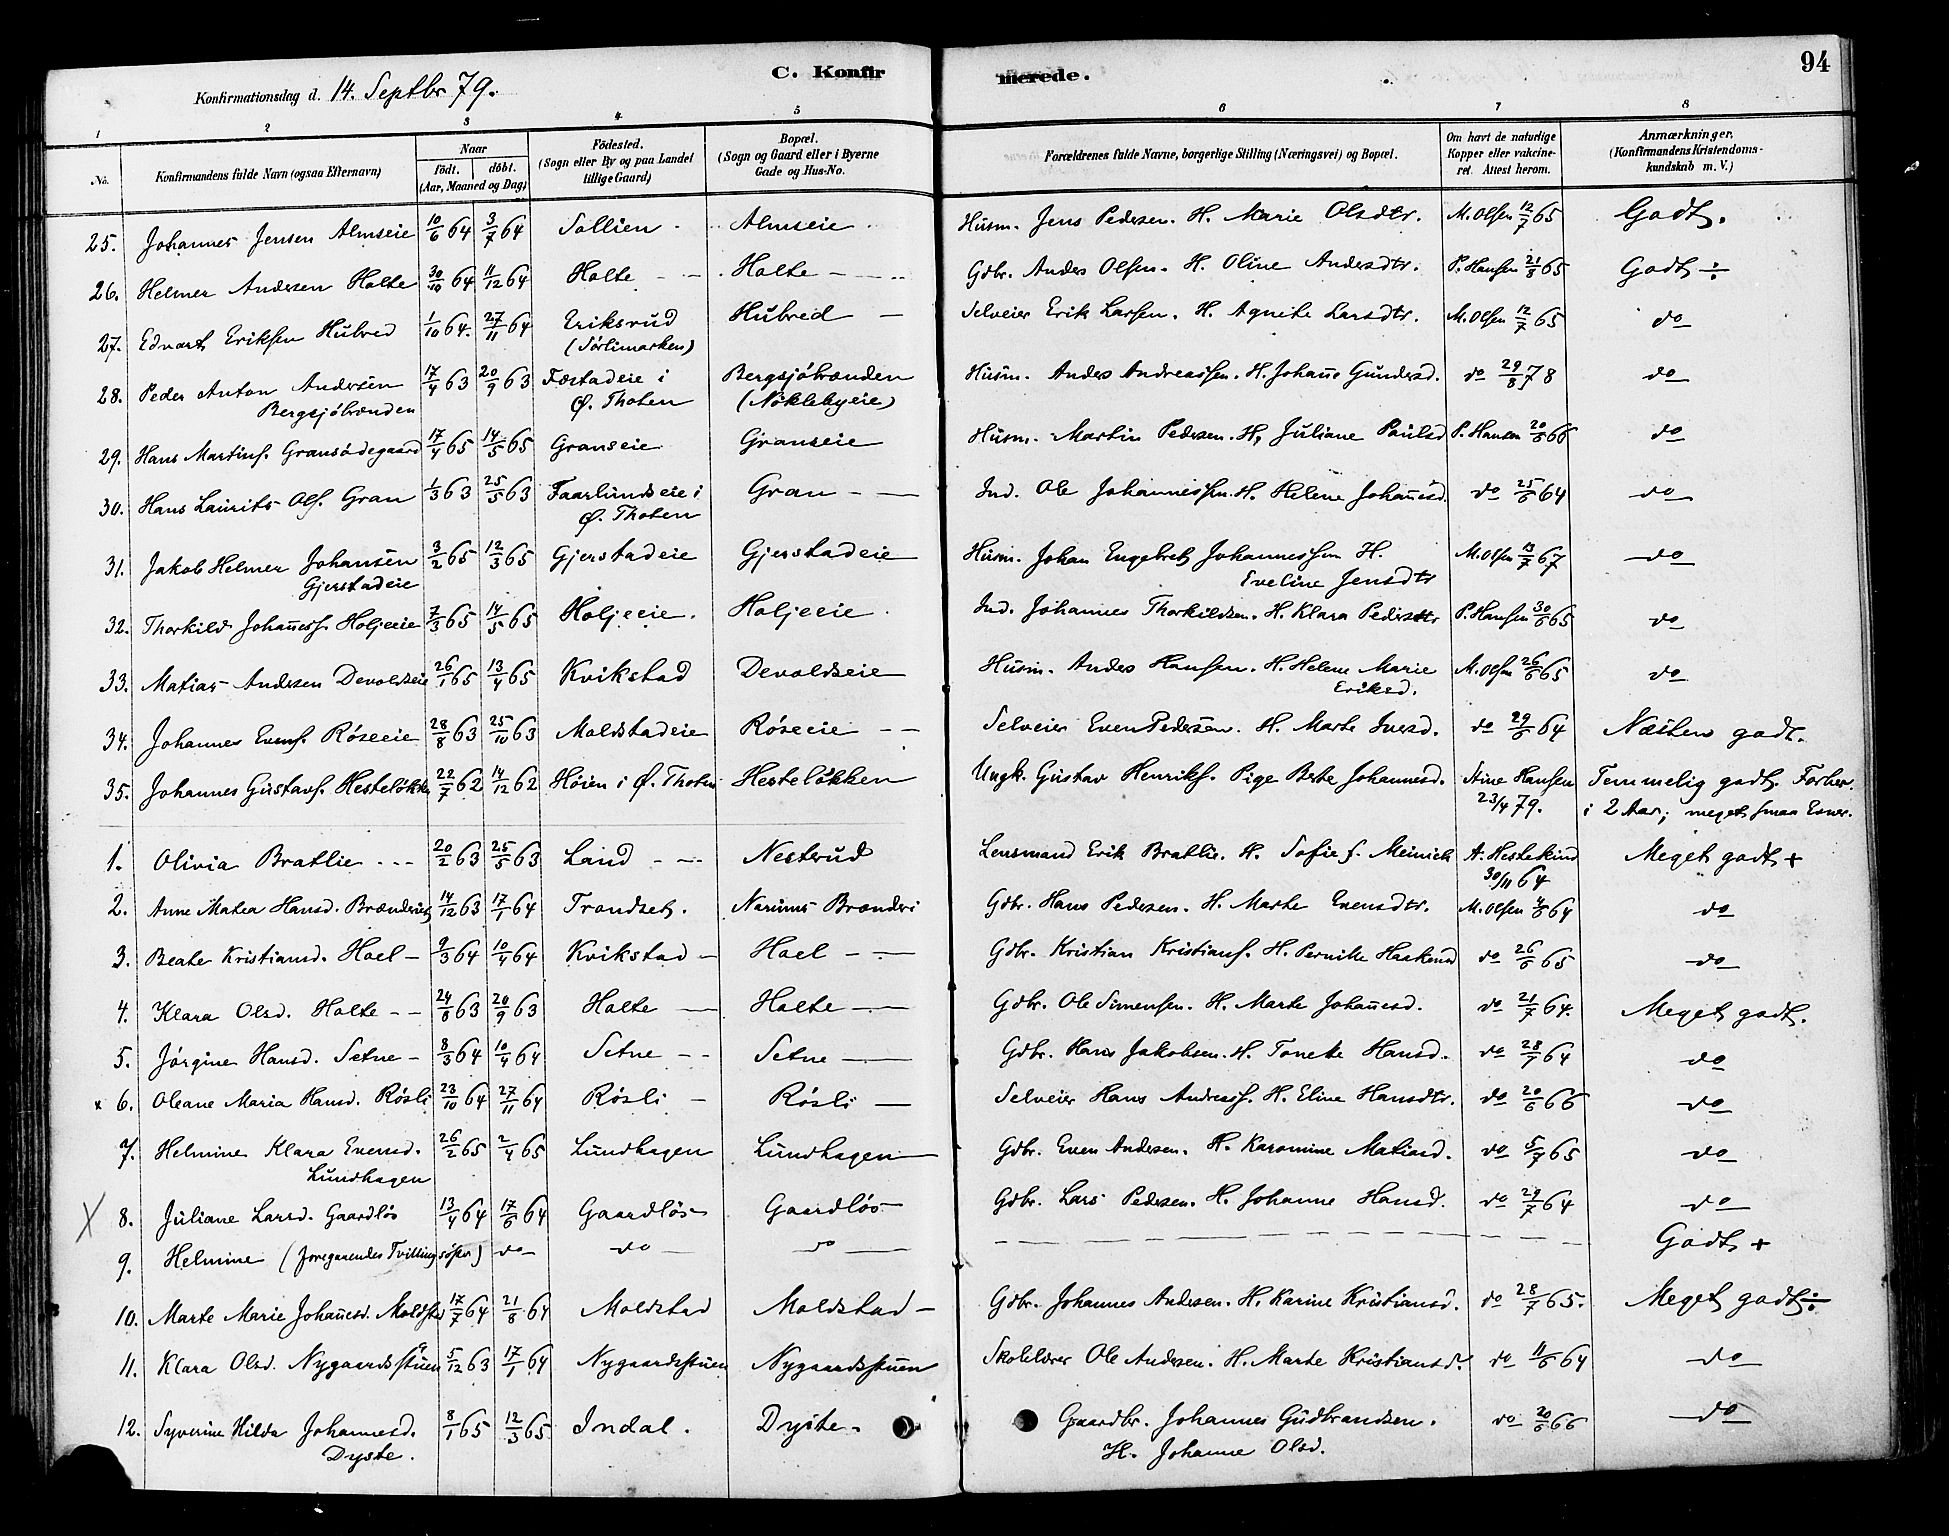 94
C. Konfirmerede.
Konfirmationsdag d. 14. Septbr 79.
1 2 3 4 5 6 7 8
No. Konfirmandens fulde Navn (ogsaa Efternavn) Naar födt. döbt. (Aar, Maaned og Dag) Födested. (Sogn eller By og paa Landet tillige Gaard) Bopæl. (Sogn og Gaard eller i Byerne Gade og Hus-No. Forældrenes fulde Navne, borgerlige Stilling (Næringsvei) og Bopæl. Om havt de naturlige Kopper eller vakcineret. Attest herom. Anmærkninger. (Konfirmandens Kristendomskundskab m. V.)
25. Johannes Jensen Almseie 10/6 64 3/7 64 Sollien Almseie Husm. Jens Pedersen. H. Marie Olsdtr. M. Olsen 12/7 65 Godt.
26. Helmer Andersen Holte 30/10 64 11/12 64 Holte Holte Gdbr. Anders Olsen. H. Oline Andersdtr. P. Hansen 21/8 65 Godt ÷
27. Edvart Eriksen Hubred 1/10 64. 27/11 64 Eriksrud (Sörlimarken) Hubred Selveier Erik Larsen. H. Agnete Larsdtr. M. Olsen 12/7 65 do
28. Peder Anton Andersen Bergsjöbrænden 17/4 63 20/9 63 Fæstadeie i Ø. Thoten Bergsjöbrænden (Nöklebyeie) Husm. Anders Andreassen. H. Johane Gundersd. do 29/8 78 do
29. Hans Martins. Gransödegaard 17/4 65 14/5 65 Granseie Granseie Husm. Martin Pedersen. H. Juliane Paulsd P. Hansen 20/6 66 do
30. Hans Laurits Ols. Gran 1/3 63 25/5 63 Faarlundseie i Ø. Thoten Gran Ind. Ole Johannessen. H. Helene Johanesd. do 25/6 64 do
31. Jakob Helmer Johansen Gjerstadeie 3/2 65 12/3 65 Gjerstadeie Gjerstadeie Husm. Johan Engebret Johannessen H. Eveline Jensdtr M. Olsen 13/7 67 do
32. Thorkild Johaness. Holjeeie 7/3 65 14/5 65 Holjeeie. Holjeeie. Ind. Johannes Thorkildsen. H. Klara Pedersdtr P. Hansen 30/6 65 do
33. Matias Andersen Devoldseie 26/1 65 13/4 65 Kvikstad Devoldseie Husm. Anders Hansen. H. Helene Marie Eriksd. M. Olsen 26/6 65 do
34. Johannes Evens. Röseeie 28/8 63 25/10 63 Moldstadeie Röseeie Selveier Even Pedersen. H. Marte Iversd. do 29/6 64 Næsten godt.
35. Johannes Gustavs. Hestelökken 22/7 62 14/12 62 Höien i Ø. Thoten Hestelökken Ungk. Gustav Henriks. Pige Berte Johannesd. Stine Hansen 23/4 79. Temmelig godt. Forber. i 2 Aar; meget smaa Evner.
1. Olivia Bratlie 20/2 63 25/5 63 Land Nesterud Lensmand Erik Bratlie. H. Sofie f. Meinich A. Hestekind 30/11 64 Meget godt +
2. Anne Matea Hansd. Brænderiet 14/12 63 17/1 64 Trondset. Narums Brænderi Gdbr. Hans Pedersen. H. Marte Evensdtr. M. Olsen 64 do
3. Beate Kristiansd. Hoel 9/3 64 10/4 64 Kvikstad Hoel Gdbr. Kristian Kristians. H. Pernille Haakensd do 26/6 65 do
4. Klara Olsd. Holte 24/8 63 20/9 63 Holte Holte Gdbr. Ole Simensen. H. Marte Johanesd. do 21/7 64. Meget godt.
5. Jörgine Hansd. Setne 8/3 64 10/4 64 Setne Setne Gdbr. Hans Jakobsen. H. Tonette Hansd. do 28/7 64 do
x 6. Oleane Maria Hansd. Rösli 23/10 64 27/11 64 Rösli Rösli Selveier Hans Andreass. H. Eline Hansdtr. do 20/6 66 do
7. Helmine Klara Evensd. Lundhagen 26/2 65 2/4 65 Lundhagen Lundhagen Gdbr. Even Andersen. H. Karomine Matiasd. do 5/7 65 do
X 8. Juliane Larsd. Gaardlös 13/4 64 17/6 64 Gaardlös Gaardlös Gdbr. Lars Pedersen. H. Johanne Hansd. do 29/7 64 do
9. Helmine (foregaaendes Tvillingsöster) do do do Godt +
10. Marte Marie Johanesd. Moldstad 17/7 64 21/8 64 Moldstad Moldstad Gdbr. Johannes Andersen. H. Karine Kristiansd. do 28/7 65. Meget godt ÷
11. Klara Olsd. Nygaardsstuen 5/12 63 17/1 64 Nygaardsstuen Nygaardsstuen Skolelærer Ole Andersen. H. Marte Kristiansd. do 11/6 64 do
12. Syverine Hilda Johannesd. Dyste. 8/1 65 12/3 65 Indal. Dyste Gaardbr. Johannes Gudbrandsen. H. Johanne Olsd. do 20/6 66 do